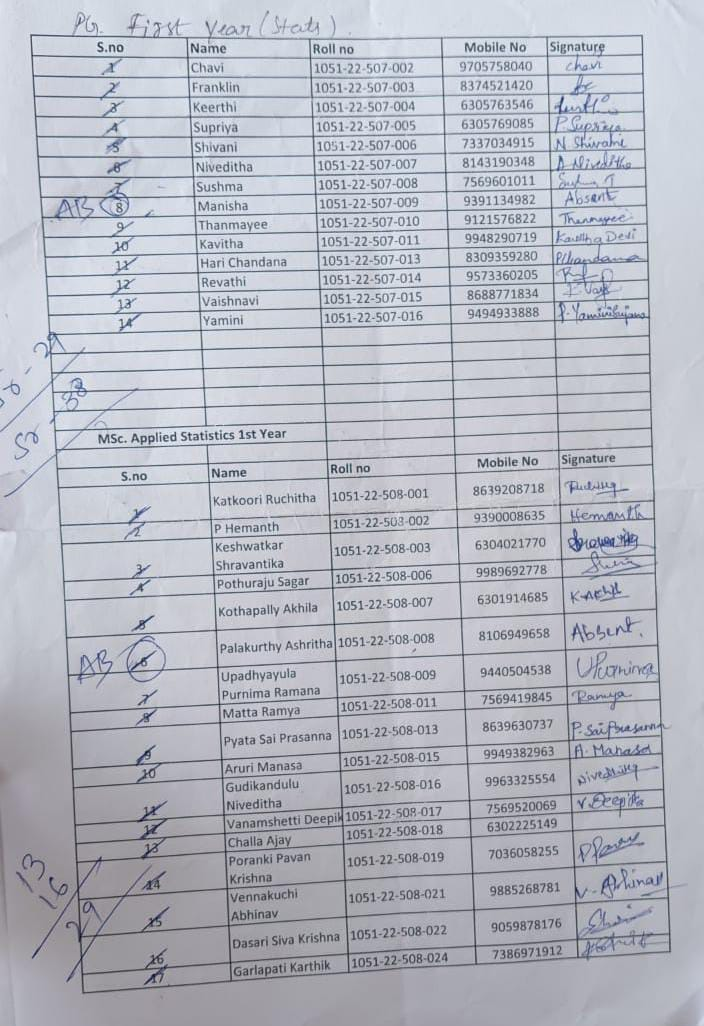 PG. First Year (Stats)
S.no Name Roll no Mobile No Signature
1 Chavi 1051-22-507-002 9705758040 chavi
2 Franklin 1051-22-507-003 8374521420
3 Keerthi 1051-22-507-004 6305763546
4 Supriya 1051-22-507-005 6305769085 P. Supriya
5 Shivani 1051-22-507-006 7337034915 N Shivani
6 Niveditha 1051-22-507-007 8143190348 A Niveditha
7 Sushma 1051-22-507-008 7569601011
AB 8 Manisha 1051-22-507-009 9391134982 Absent
9 Thanmayee 1051-22-507-010 9121576822 Thanmayee
10 Kavitha 1051-22-507-011 9948290719 Kavitha Devi
11 Hari Chandana 1051-22-507-013 8309359280 P.Chandana
12 Revathi 1051-22-507-014 9573360205
13 Vaishnavi 1051-22-507-015 8688771834
14 Yamini 1051-22-507-016 9494933888
MSc. Applied Statistics 1st Year
S.no Name Roll no Mobile No Signature
1 Katkoori Ruchitha 1051-22-508-001 8639208718
2 P Hemanth 1051-22-508-002 9390008635 Hemanth
3 Keshwatkar Shravantika 1051-22-508-003 6304021770
4 Pothuraju Sagar 1051-22-508-006 9989692778
5 Kothapally Akhila 1051-22-508-007 6301914685 K.Akhil
AB 6 Palakurthy Ashritha 1051-22-508-008 8106949658 Absent.
7 Upadhyayula Purnima Ramana 1051-22-508-009 9440504538 UPurnima
8 Matta Ramya 1051-22-508-011 7569419845 Ramya
9 Pyata Sai Prasanna 1051-22-508-013 8639630737 P. Sai Prasanna
10 Aruri Manasa 1051-22-508-015 9949382963 A. Manasa
11 Gudikandulu Niveditha 1051-22-508-016 9963325554
12 Vanamshetti Deepik 1051-22-508-017 7569520069 V.Deepika
13 Challa Ajay 1051-22-508-018 6302225149
14 Poranki Pavan Krishna 1051-22-508-019 7036058255
15 Vennakuchi Abhinav 1051-22-508-021 9885268781 V. Abhinav
16 Dasari Siva Krishna 1051-22-508-022 9059878176
17 Garlapati Karthik 1051-22-508-024 7386971912
13
16
29